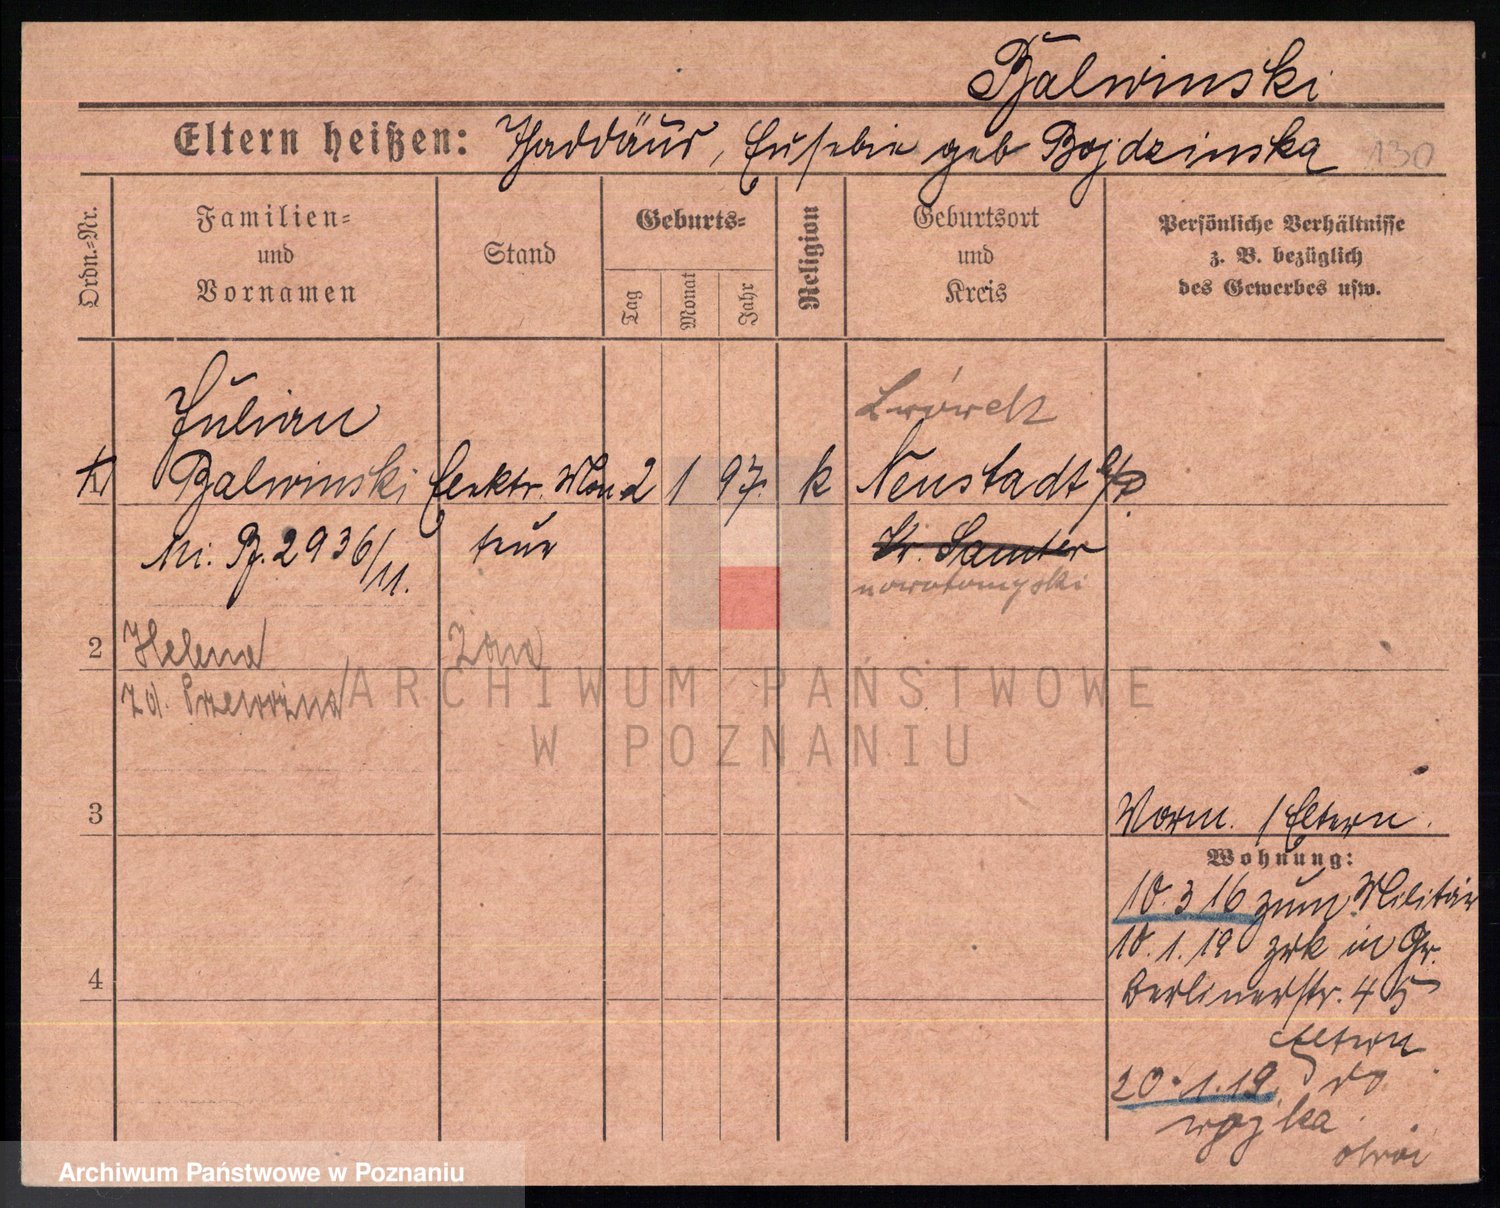 Balwinski
Eltern heißen: Thaddäus, Eusebie geb Bojdzinska 130
Ordn.=Nr.
Familien=
und
Vornamen
Stand
Geburts=
Tag
Monat
Jahr
Religion
Geburtsort
und
Kreis
Persönliche Verhältnisse
z. B. bezüglich
des Gewerbes usw.
Julian
Lwówek
1 Balwinski Elektr. Mon 2 1 97. k Neustadt
Mi. B. 2936/11. teur Kr. Samter
nowotomyski
2 Helena Żona
Zd. Przewoźna
ARCHIWUM PAŃSTWOWE
W POZNANIU
3
Vorm. / Eltern.
Wohnung:
10.3 16 zum Militär
10.1.19 zrk in Gr.
4
Berlinerstr. 45
Eltern
20.1.19. do
wojska
Archiwum Państwowe w Poznaniu